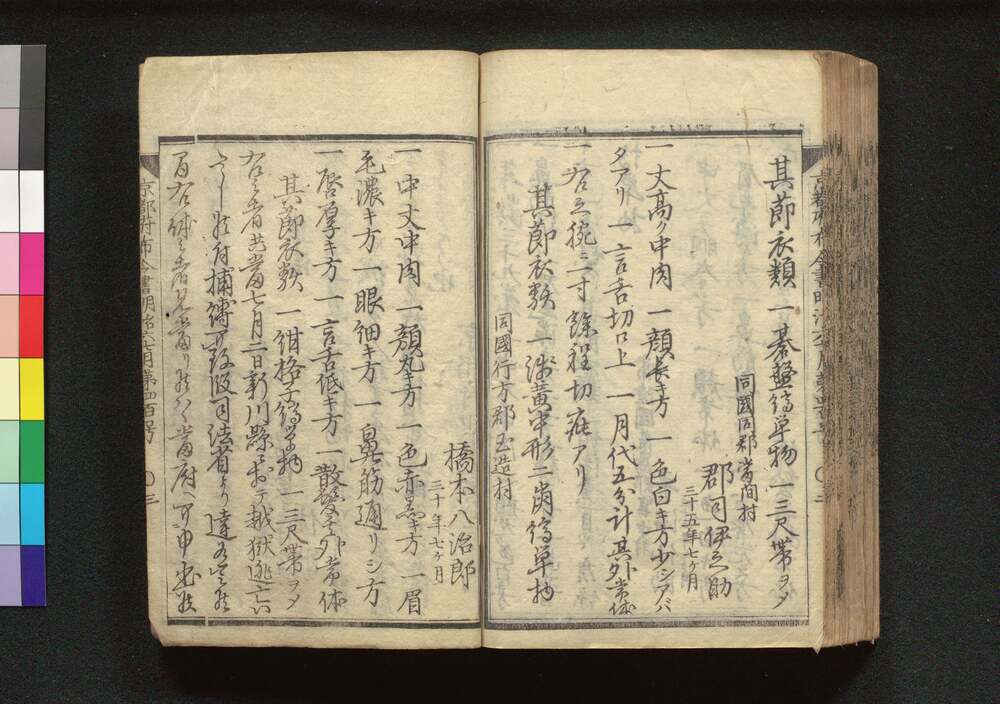 其節衣類 一碁盤縞単物 一三尺帯ヲメ
同國同郡当間村
郡司伊之助
三十五年七ヶ月
一丈高ク中肉 一顔長キ方 一色白キ方少シアバ
タアリ 一言舌切口上 一月代五分計其外常体
一右之腕二寸餘程切疵アリ
其節衣類 一浅黄中形二崩縞単物
同國行方郡玉造村
橋本八治郎
三十年七ヶ月
一中丈中肉 一顔丸キ方 一色赤黒キ方 一眉
毛濃キ方 一眼細キ方 一鼻筋通リシ方
一唇厚キ方 一言舌低キ方 一散髪其外常体
其節衣類 一紺格子縞単物 一三尺帯ヲメ
右之者共当七月二日新川縣ニおゐテ越獄逃亡い
たし候ニ付捕縛可致段司法省より達有之候
間右体之者見当リ候ハヽ当府ヘ可申出候
京都府布令書明治六年八月第四百号 〇三